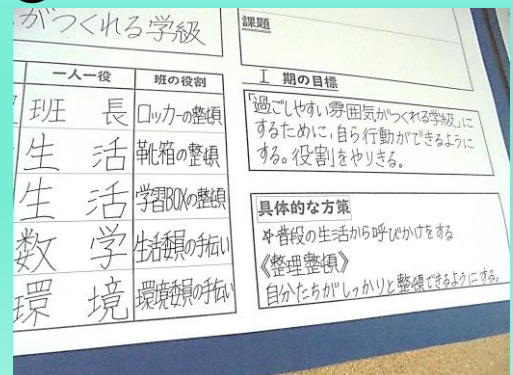 がつくれる学級
一人一役 班の役割
班長 ロッカーの整頓
生活 靴箱の整頓
生活 学習BOXの整頓
数学 生活委員の手伝い
環境 環境委員の手伝い
課題
I 期の目標
「過ごしやすい雰囲気がつくれる学級」に
するために、自ら行動ができるように
する。役割をやりきる。
具体的な方策
☆普段の生活から呼びかけをする
《整理整頓》
自分たちがしっかりと整頓できるようにする。